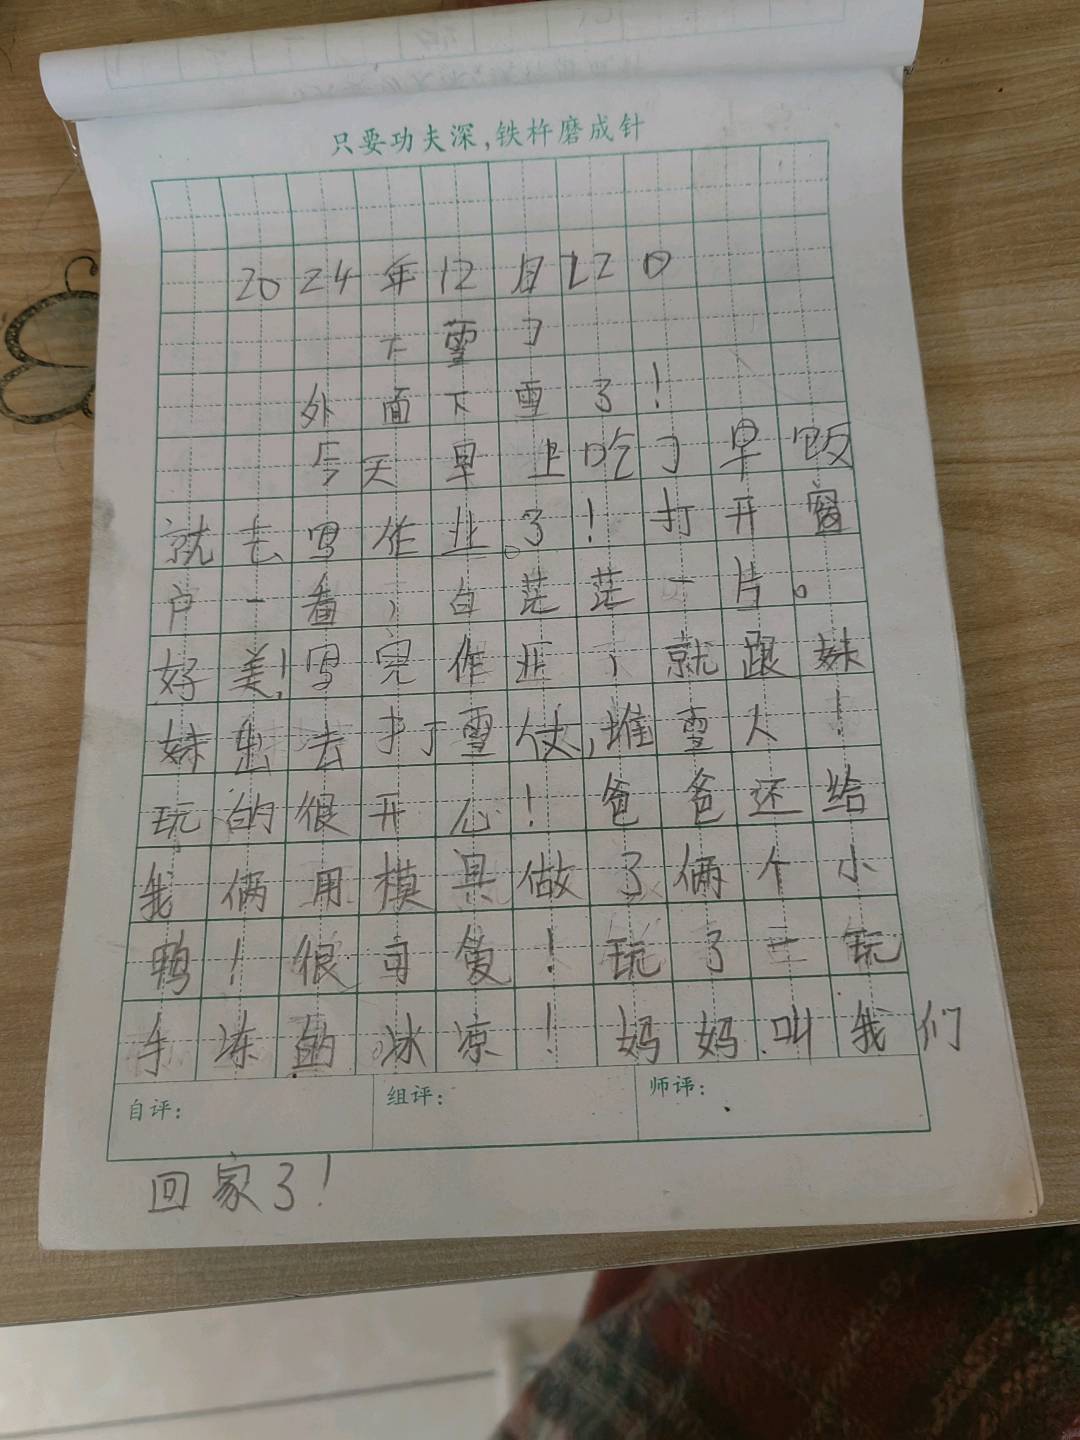 只要功夫深,铁杵磨成针
2024年12月12日
下雪了
外面下雪了!
今天早上吃了早饭
就去写作业。了!打开窗
户一看,白茫茫一片。
好美!写完作业,就跟妹
妹出去打雪仗,堆雪人!
玩的很开心!爸爸还给
我俩用模具做了俩个小
鸭!很可爱!玩了一玩
手冻的冰凉!妈妈叫我们
自评:
组评:
师评:
回家了!